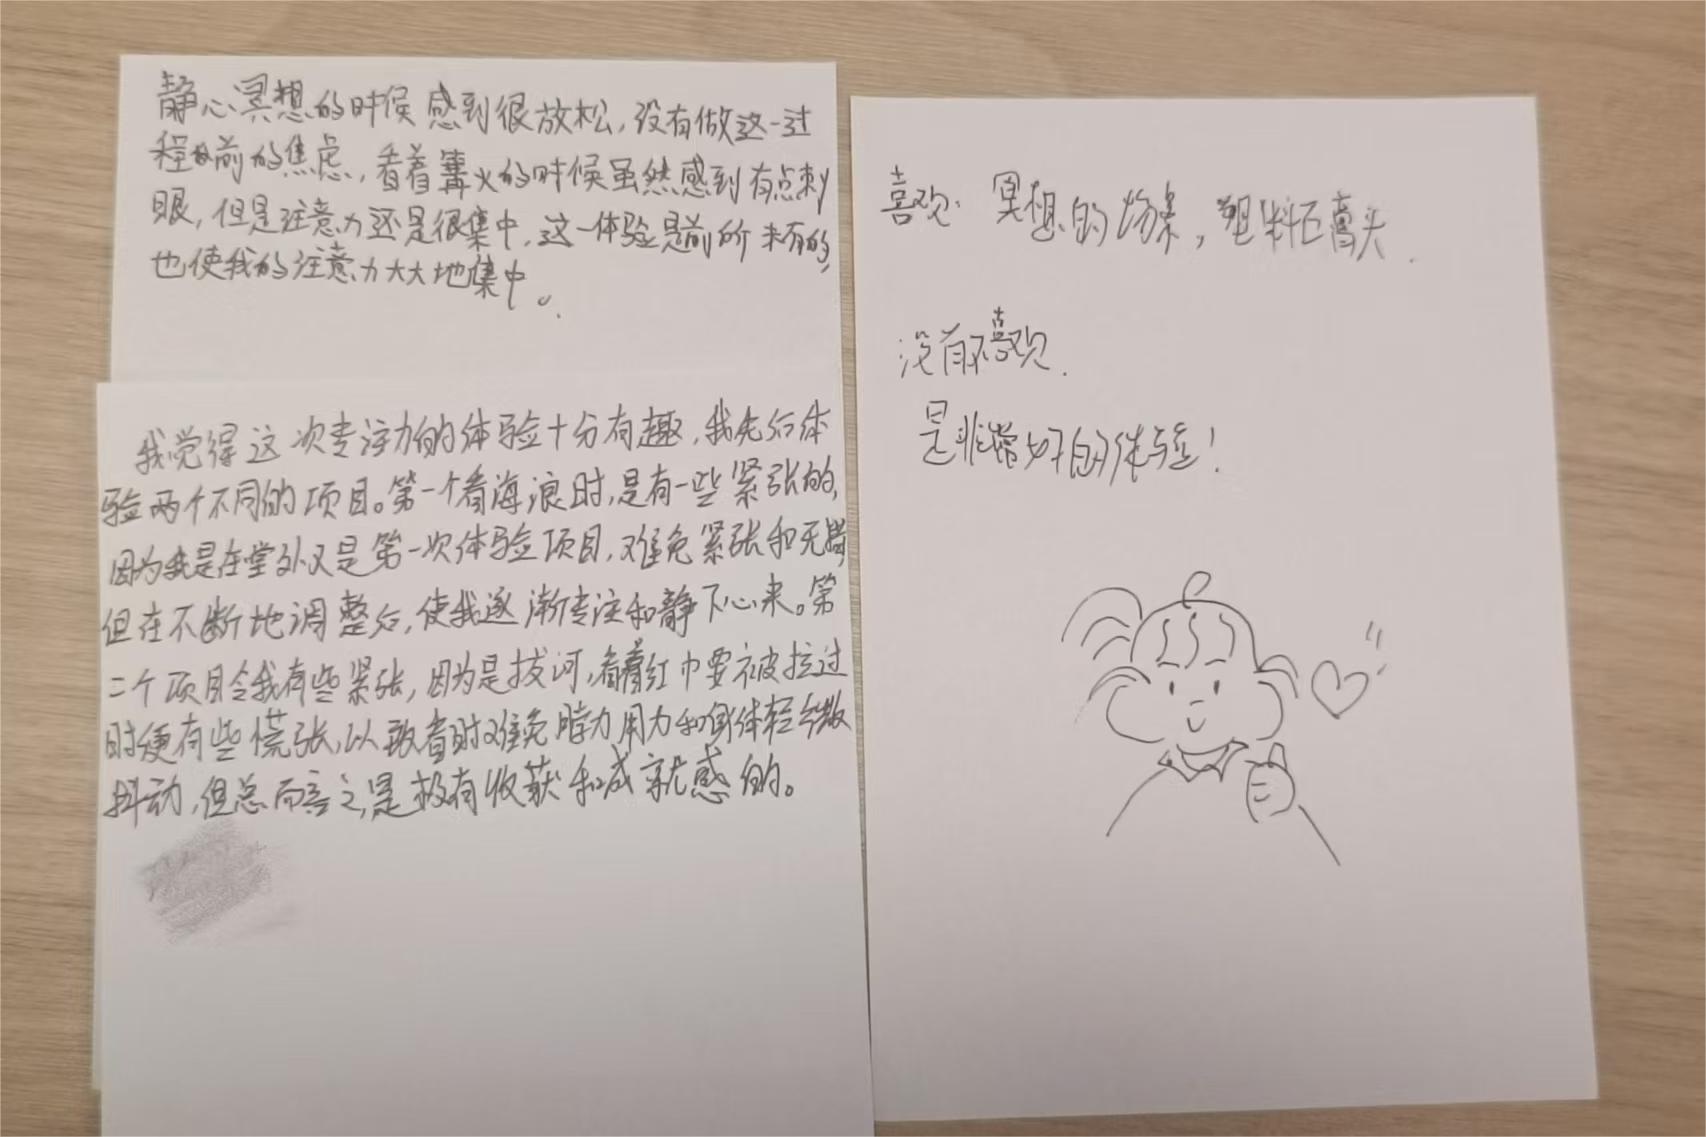 静心冥想的时候感到很放松,没有做这一过
程前的焦虑,看着篝火的时候虽然感到有点刺
眼,但是注意力还是很集中,这一体验是前所未有的,
也使我的注意力大大地集中。
我觉得这次专注力的体验十分有趣,我先后体
验两个不同的项目。第一个看海浪时,是有一些紧张的,
因为我是在堂外又是第一次体验项目,难免紧张和无措,
但在不断地调整后,使我逐渐专注和静下心来。第
二个项目令我有些紧张,因为是拔河,看着红巾要被拉过
时便有些慌张,以致者时难免脖力用力和身体轻微
抖动,但总而言之,是极有收获和成就感的。
喜欢:冥想的场景,塑料巨膏头.
没有不喜欢.
是非常好的体验!